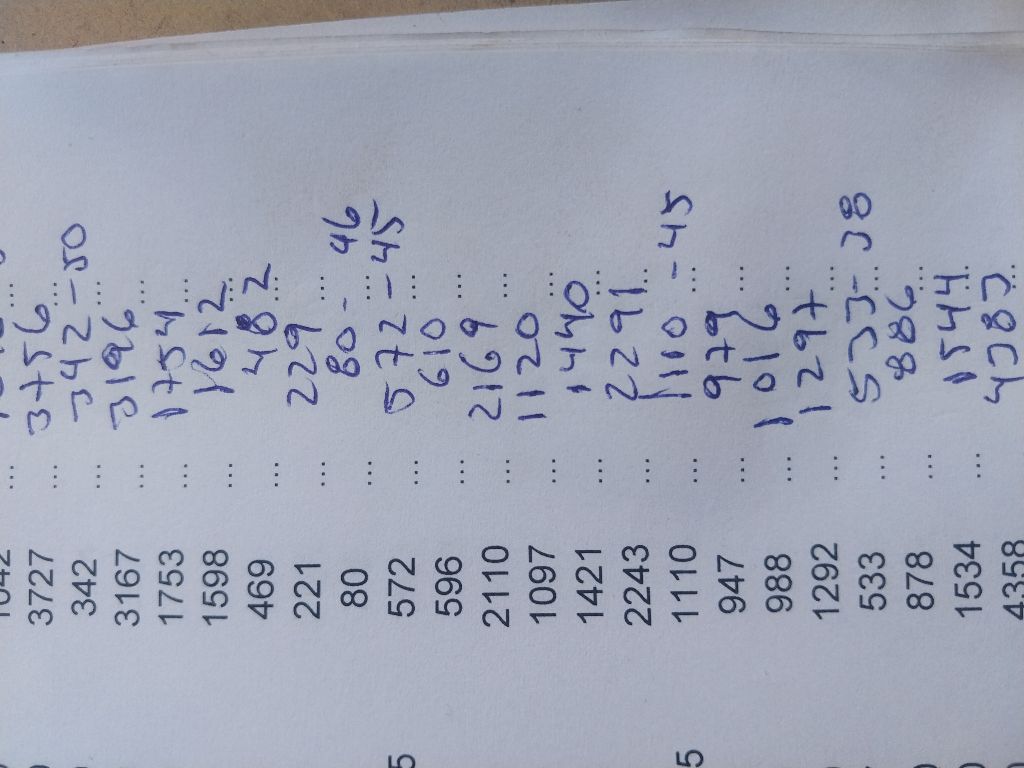 3727 ... 3756 ...
342 ... 342 - 50 ...
3167 ... 3196 ...
1753 ... 1754 ...
1598 ... 1612 ...
469 ... 482 ...
221 ... 229 ...
80 ... 80 - 46 ...
572 ... 572 - 45 ...
596 ... 610 ...
2110 ... 2169 ...
1097 ... 1120 ...
1421 ... 1440 ...
2243 ... 2291 ...
1110 ... 1110 - 45 ...
947 ... 979 ...
988 ... 1016 ...
1292 ... 1297 ...
533 ... 533 - 38 ...
878 ... 886 ...
1534 ... 1544 ...
4358 4383